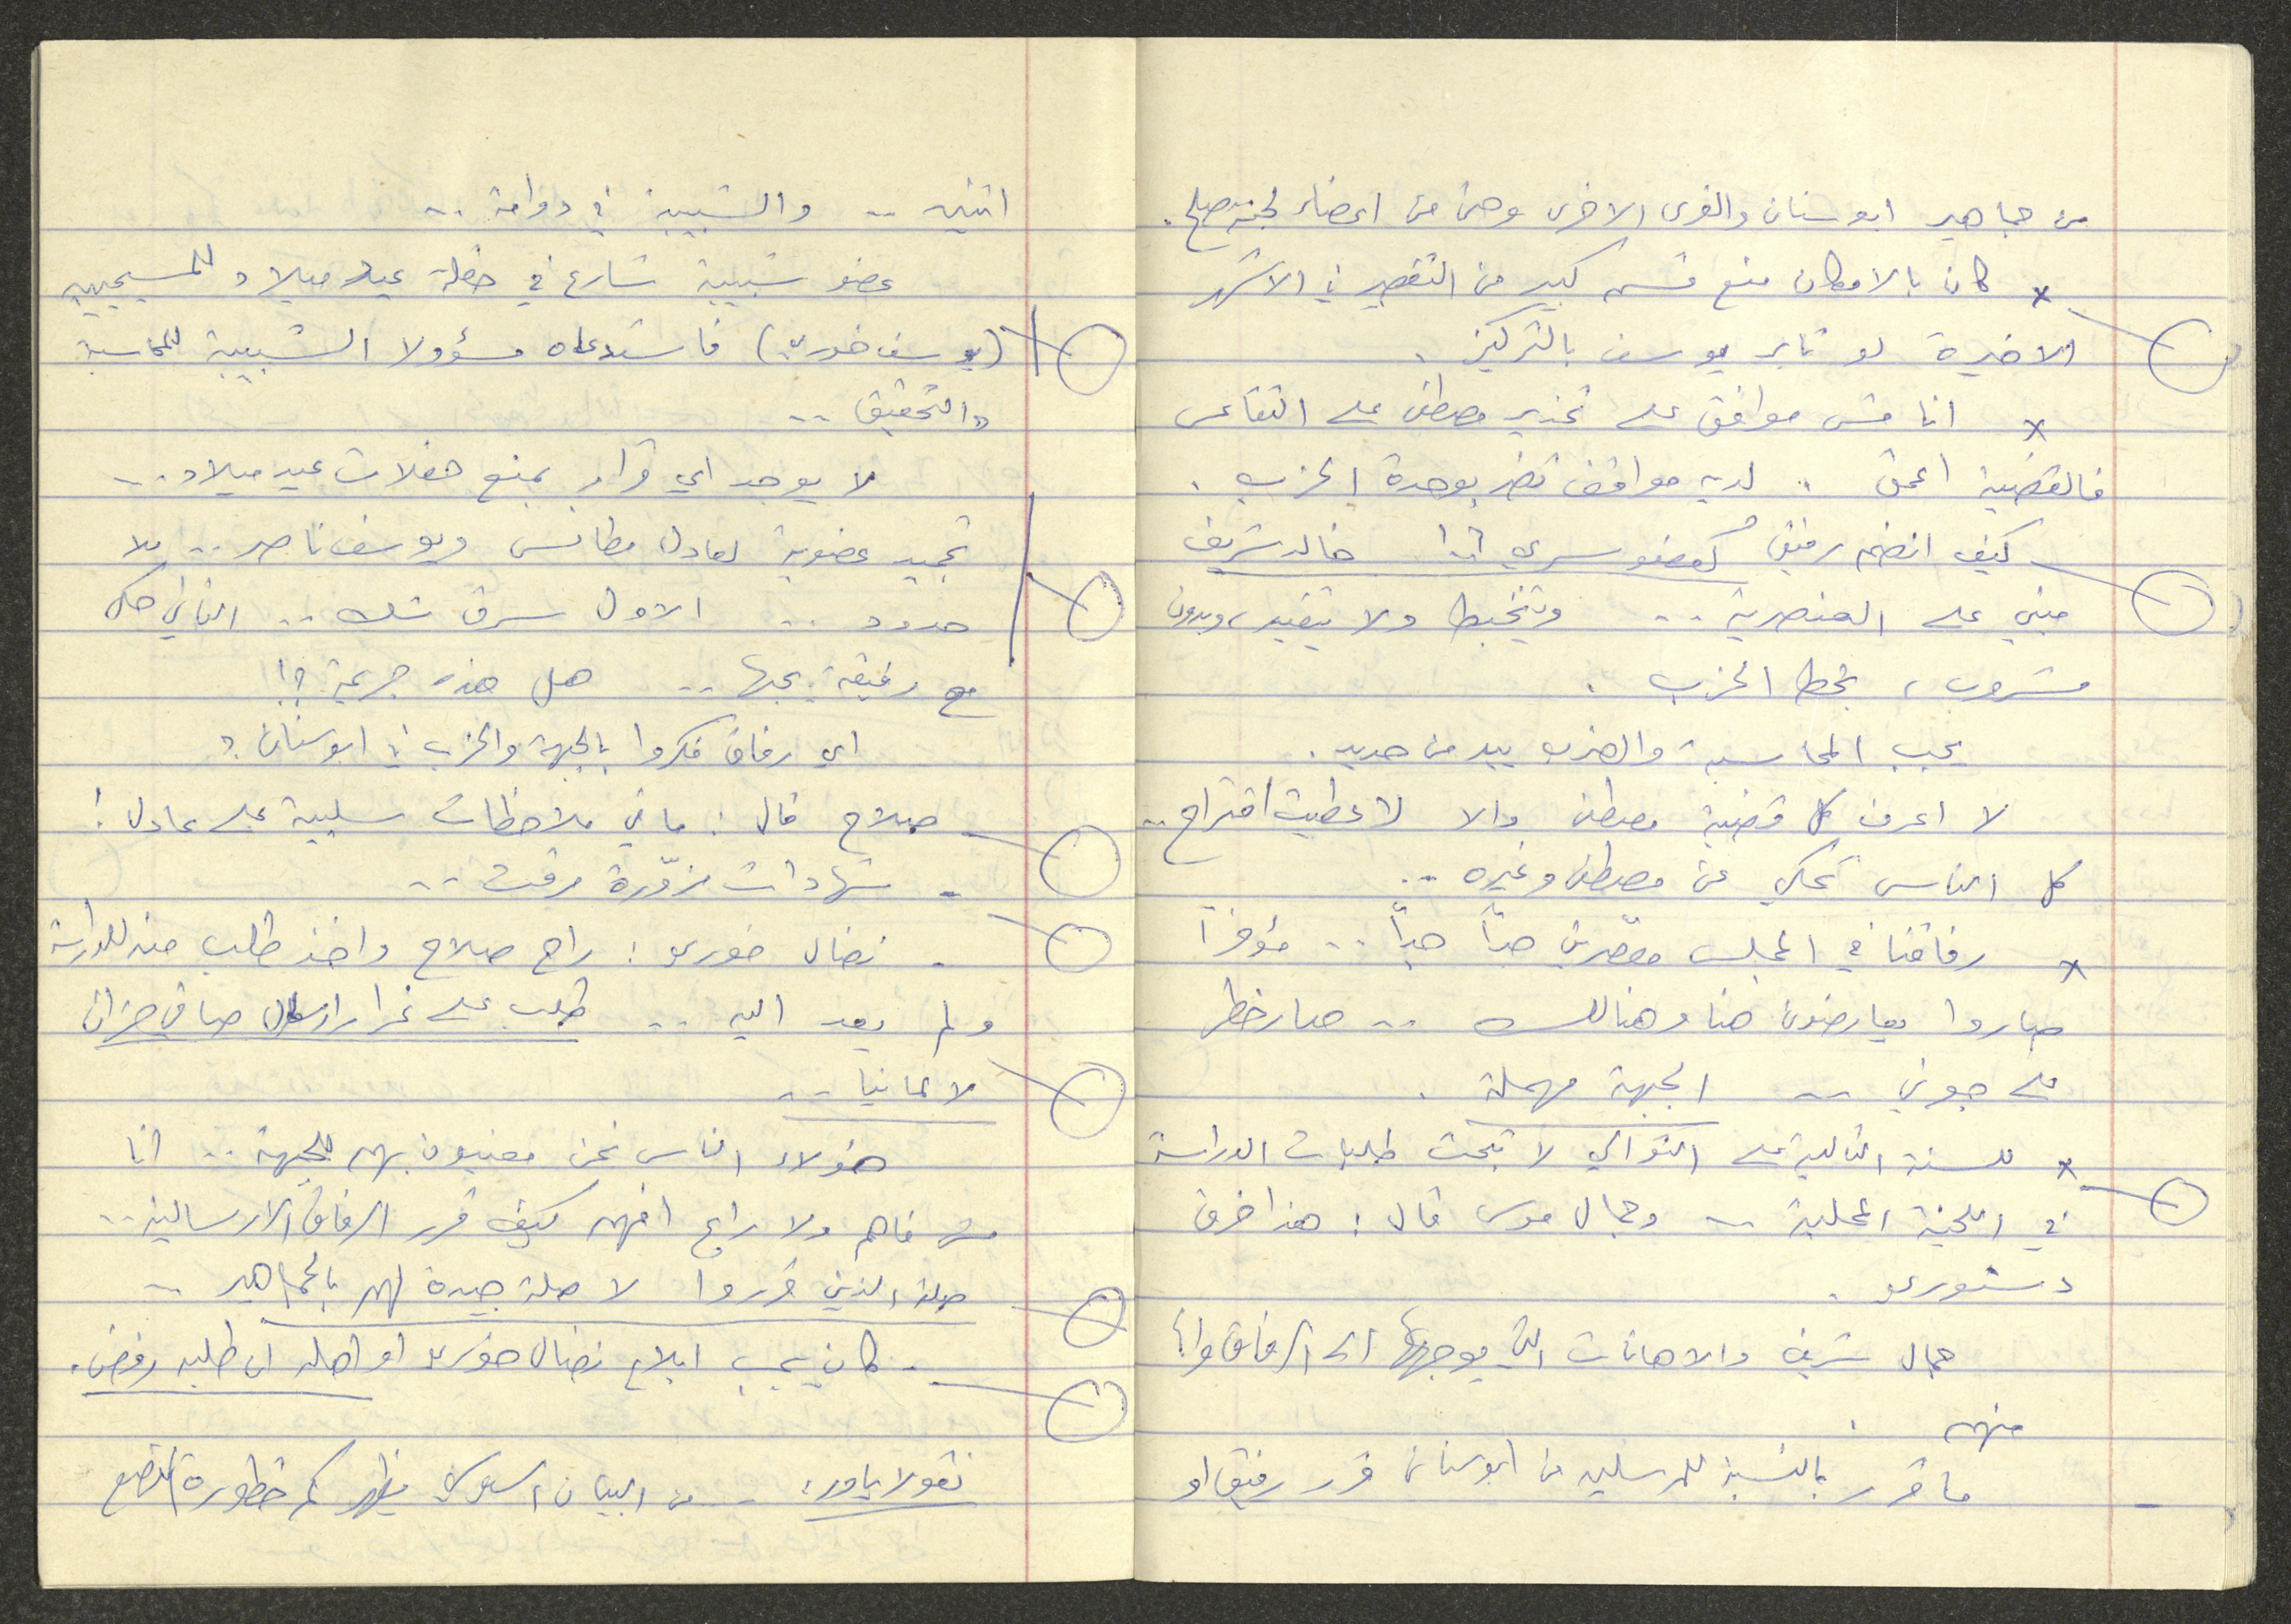 من جماهير ابو سنان والقرى الاخرى وحتى من اعضاء لجنة صلح.
× كان بالامكان منع قسم كبير من التقصير في الاشهر
الاخيرة لو ثابر يوسف بالتركيز.
× انا مش موافق على تحذير مصطفى على التقاعس
فالقضية اعمق.. لديه مواقف تضر بوحدة الحزب.
كيف انضم رفيق كعضو سري خالد شريف
مبني على العنصرية.. ويتخبط ولا يتقيد، وبدون
مشروب، بخط الحزب.
يجب المحاسبة والضرب بيد من حديد.
لا اعرف كل قضية مصطفى والا لاعطيت اقتراح..
كل الناس تحكي عن مصطفى وغيره..
× رفاقنا في المجلس مقصرين جداً جداً.. مؤخراً
صاروا يعارضون هنا وهنالك.. صار خطر
على جوني.. الجبهة مهملة.
× للسنة الثالثة على التوالي لا تبحث طلبات الدراسة
في اللجنة المحلية.. وجمال موسى قال: هذا خرق
دستوري.
جمال شريف والاهانات التي يوجهها الى الرفاق وانا
منهم.
- ما قرر بالنسبة للمرسلين من ابو سنان قرر رفيق او
اثنين.. والشبيبة في دوامة..
عضو شبيبة شارك في حفلة عيد ميلاد للمسيحيين
(يوسف خوري) فاستدعاه مسؤولا الشبيبة للمحاسبة
والتحقيق..
لا يوجد اي قرار بمنع حفلات عيد ميلاد..
تجميد عضوية لعادل مطانس ويوسف ناصر.. بلا
حدود.. الاول سرق شك.. الثاني حكى
مع رفيقة يحبها.. هل هذه جريمة؟!
اي رفاق فكروا بالجبهة والحزب في ابو سنان؟
صلاح قال: ما في ملاحظات سلبية على عادل!
- شهادات مزوّرة مرقت..
- نضال خوري: راح صلاح واخذ طلب منه للدراسة
ولم يعد اليه.. طلب على غرار ارسال صافي
لالمانيا..
هؤلاء الناس نحن معنيون بهم للجبهة.. انا
مش فاهم ولا راح افهم كيف قرر الرفاق الارسالية..
الذين قرروا لا صلة جيدة لهم بالجماهير..
- كان يجب ابلاغ نضال خوري او اهله ان طلبه رفض.
نقولا: - من البيان يظهر كم خطورة الوضع